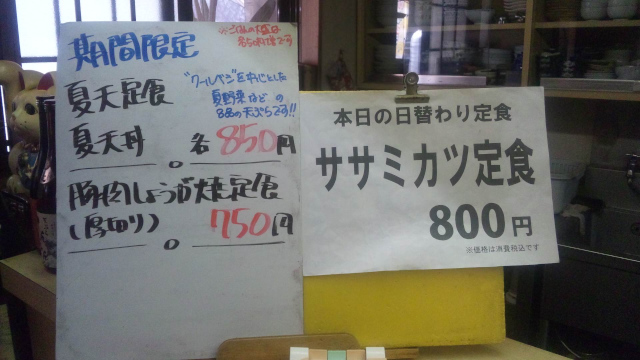 期間限定
※ごはんの大盛は
各50円増です
夏天定食
"クールベジ"を中心とした
夏野菜などの
8品の天ぷらです!!
夏天丼 各850円
豚肉しょうが焼定食
(厚切り) 750円
本日の日替わり定食
ササミカツ定食
800円
※価格は消費税込です